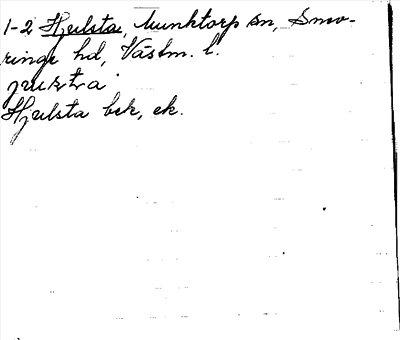 1-2 Hjulsta, Munktorp sn, Snev-
ringe hd, Västm. l.
justa
Hjulsta bek, ek.